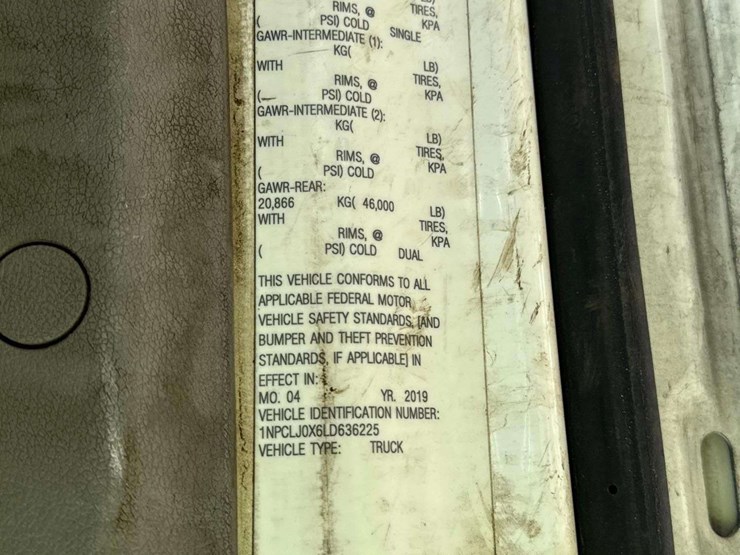 RIMS, @ TIRES,
( PSI) COLD KPA
GAWR-INTERMEDIATE (1): SINGLE
KG(
WITH LB)
RIMS, @ TIRES,
( PSI) COLD KPA
GAWR-INTERMEDIATE (2):
KG(
WITH LB)
RIMS, @ TIRES,
( PSI) COLD KPA
GAWR-REAR:
20,866 KG( 46,000 LB)
WITH TIRES,
RIMS, @ KPA
( PSI) COLD DUAL
THIS VEHICLE CONFORMS TO ALL
APPLICABLE FEDERAL MOTOR
VEHICLE SAFETY STANDARDS, [AND
BUMPER AND THEFT PREVENTION
STANDARDS, IF APPLICABLE] IN
EFFECT IN:
MO. 04 YR. 2019
VEHICLE IDENTIFICATION NUMBER:
1NPCLJ0X6LD636225
VEHICLE TYPE: TRUCK